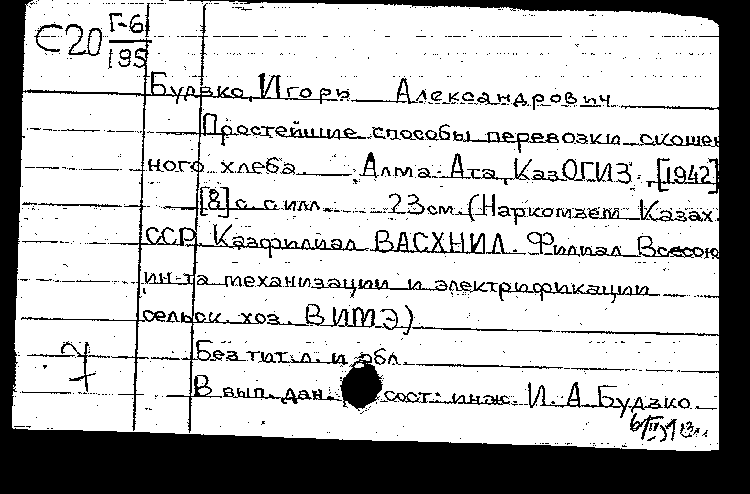 С20 Г-6
195
Будзко, Игорь Александрович
Простейшие способы перевозки скошен
ного хлеба. Алма-Ата, КазОГИЗ, [1942]
[8] с. с илл. 23 см. (Наркомзем Казах.
ССР. Казфилиал ВАСХНИЛ. Филиал Всесою
ин-та механизации и электрификации
сельск. хоз. ВИМЭ)
Без тит. л. и обл.
В вып. дан. сост: инж. И. А. Будзко.